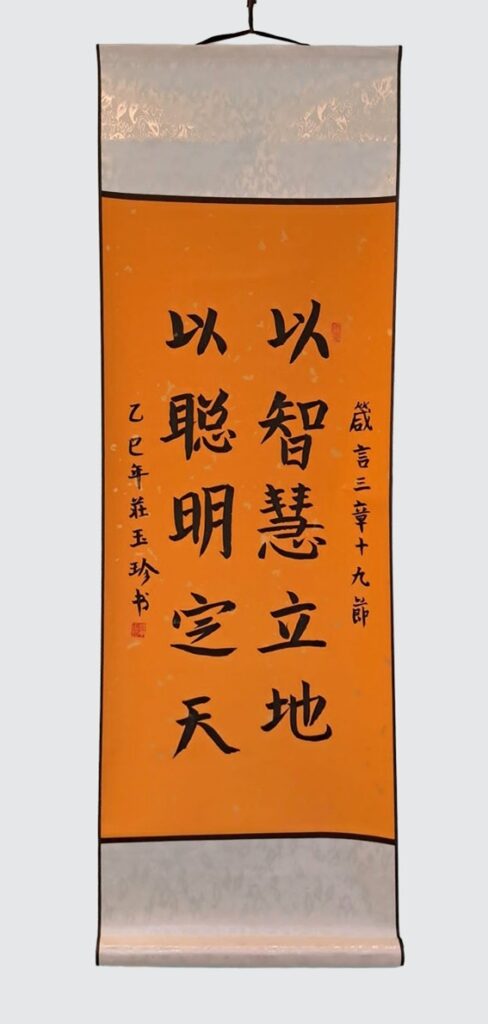 箴言三章十九節
以智慧立地
以聪明定天
乙巳年莊玉珍书